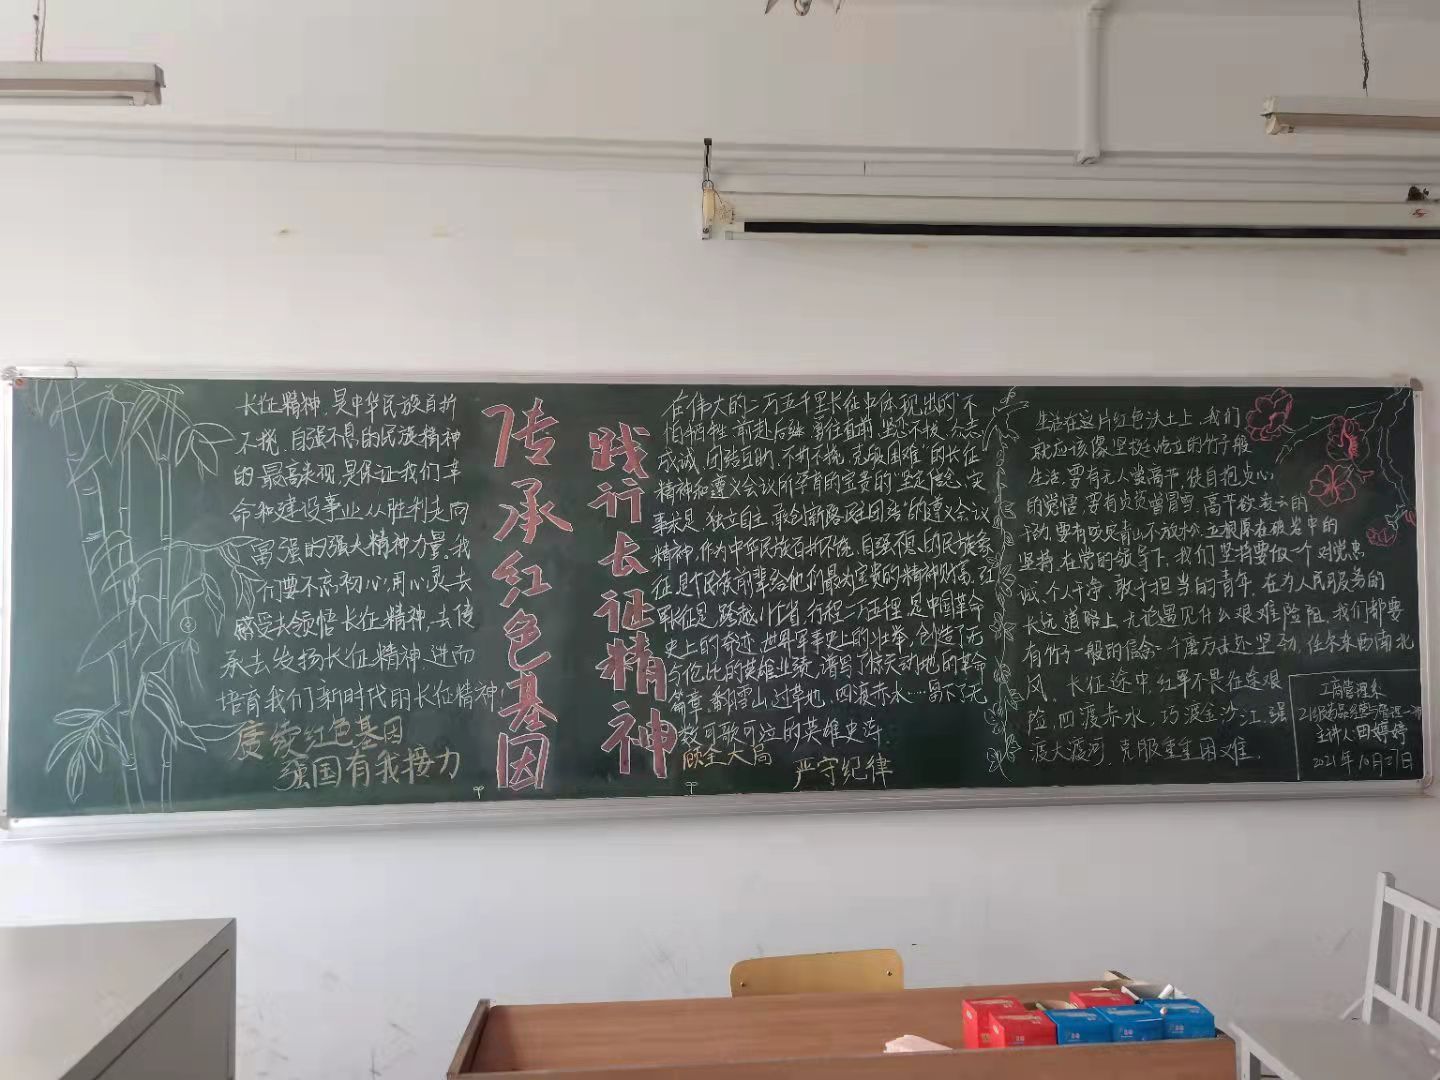 长征精神,是中华民族百折
不挠,自强不息的民族精神
的最高表现,是保证我们革
命和建设事业从胜利走向
富强的强大精神力量。我
们要不忘初心,用心灵去
感受去领悟长征精神,去传
承去发扬长征精神,进而
培育我们新时代的长征精神!
赓续红色基因
强国有我接力
传承红色基因
践行长征精神
在伟大的二万五千里长征中体现出的"不
怕牺牲,前赴后继,勇往直前,坚忍不拔,众志
成诚,团结互助,不折不挠,克服困难"的长征
精神和遵义会议所孕育的宝贵的"坚定信念,实
事求是,独立自主,敢创新路,民主团结"的遵义会议
精神,作为中华民族百折不挠,自强不息的民族象
征,是民族前辈给他们最为宝贵的精神财富,红
军长征,跨越十几省,行程二万五千里,是中国革命
史上的奇迹,世界军事史上的壮举,创造了无
与伦比的英雄业绩,谱写了惊天动地的革命
篇章,翻雪山,过草地,四渡赤水……留下了无
数可歌可泣的英雄史诗.
顾全大局
严守纪律
生活在这片红色沃土上,我们
就应该像坚韧屹立的竹子般
生活,要有无人赏高节,徒自抱贞心
的觉悟,要有贞质曾冒雪,高节欲凌云的
干劲,要有咬定青山不放松,立根原在破岩中的
坚持,在党的领导下,我们坚持要做一个对党忠
诚,个人干净,敢于担当的青年,在为人民服务的
长远道路上,无论遇见什么艰难险阻,我们都要
有竹子一般的信念:千磨万击还坚劲,任尔东西南北
风。长征途中,红军不畏征途艰
险,四渡赤水,巧渡金沙江,强
渡大渡河,克服重重困难.
工商管理系
主讲人:田婷婷
2021年10月27日